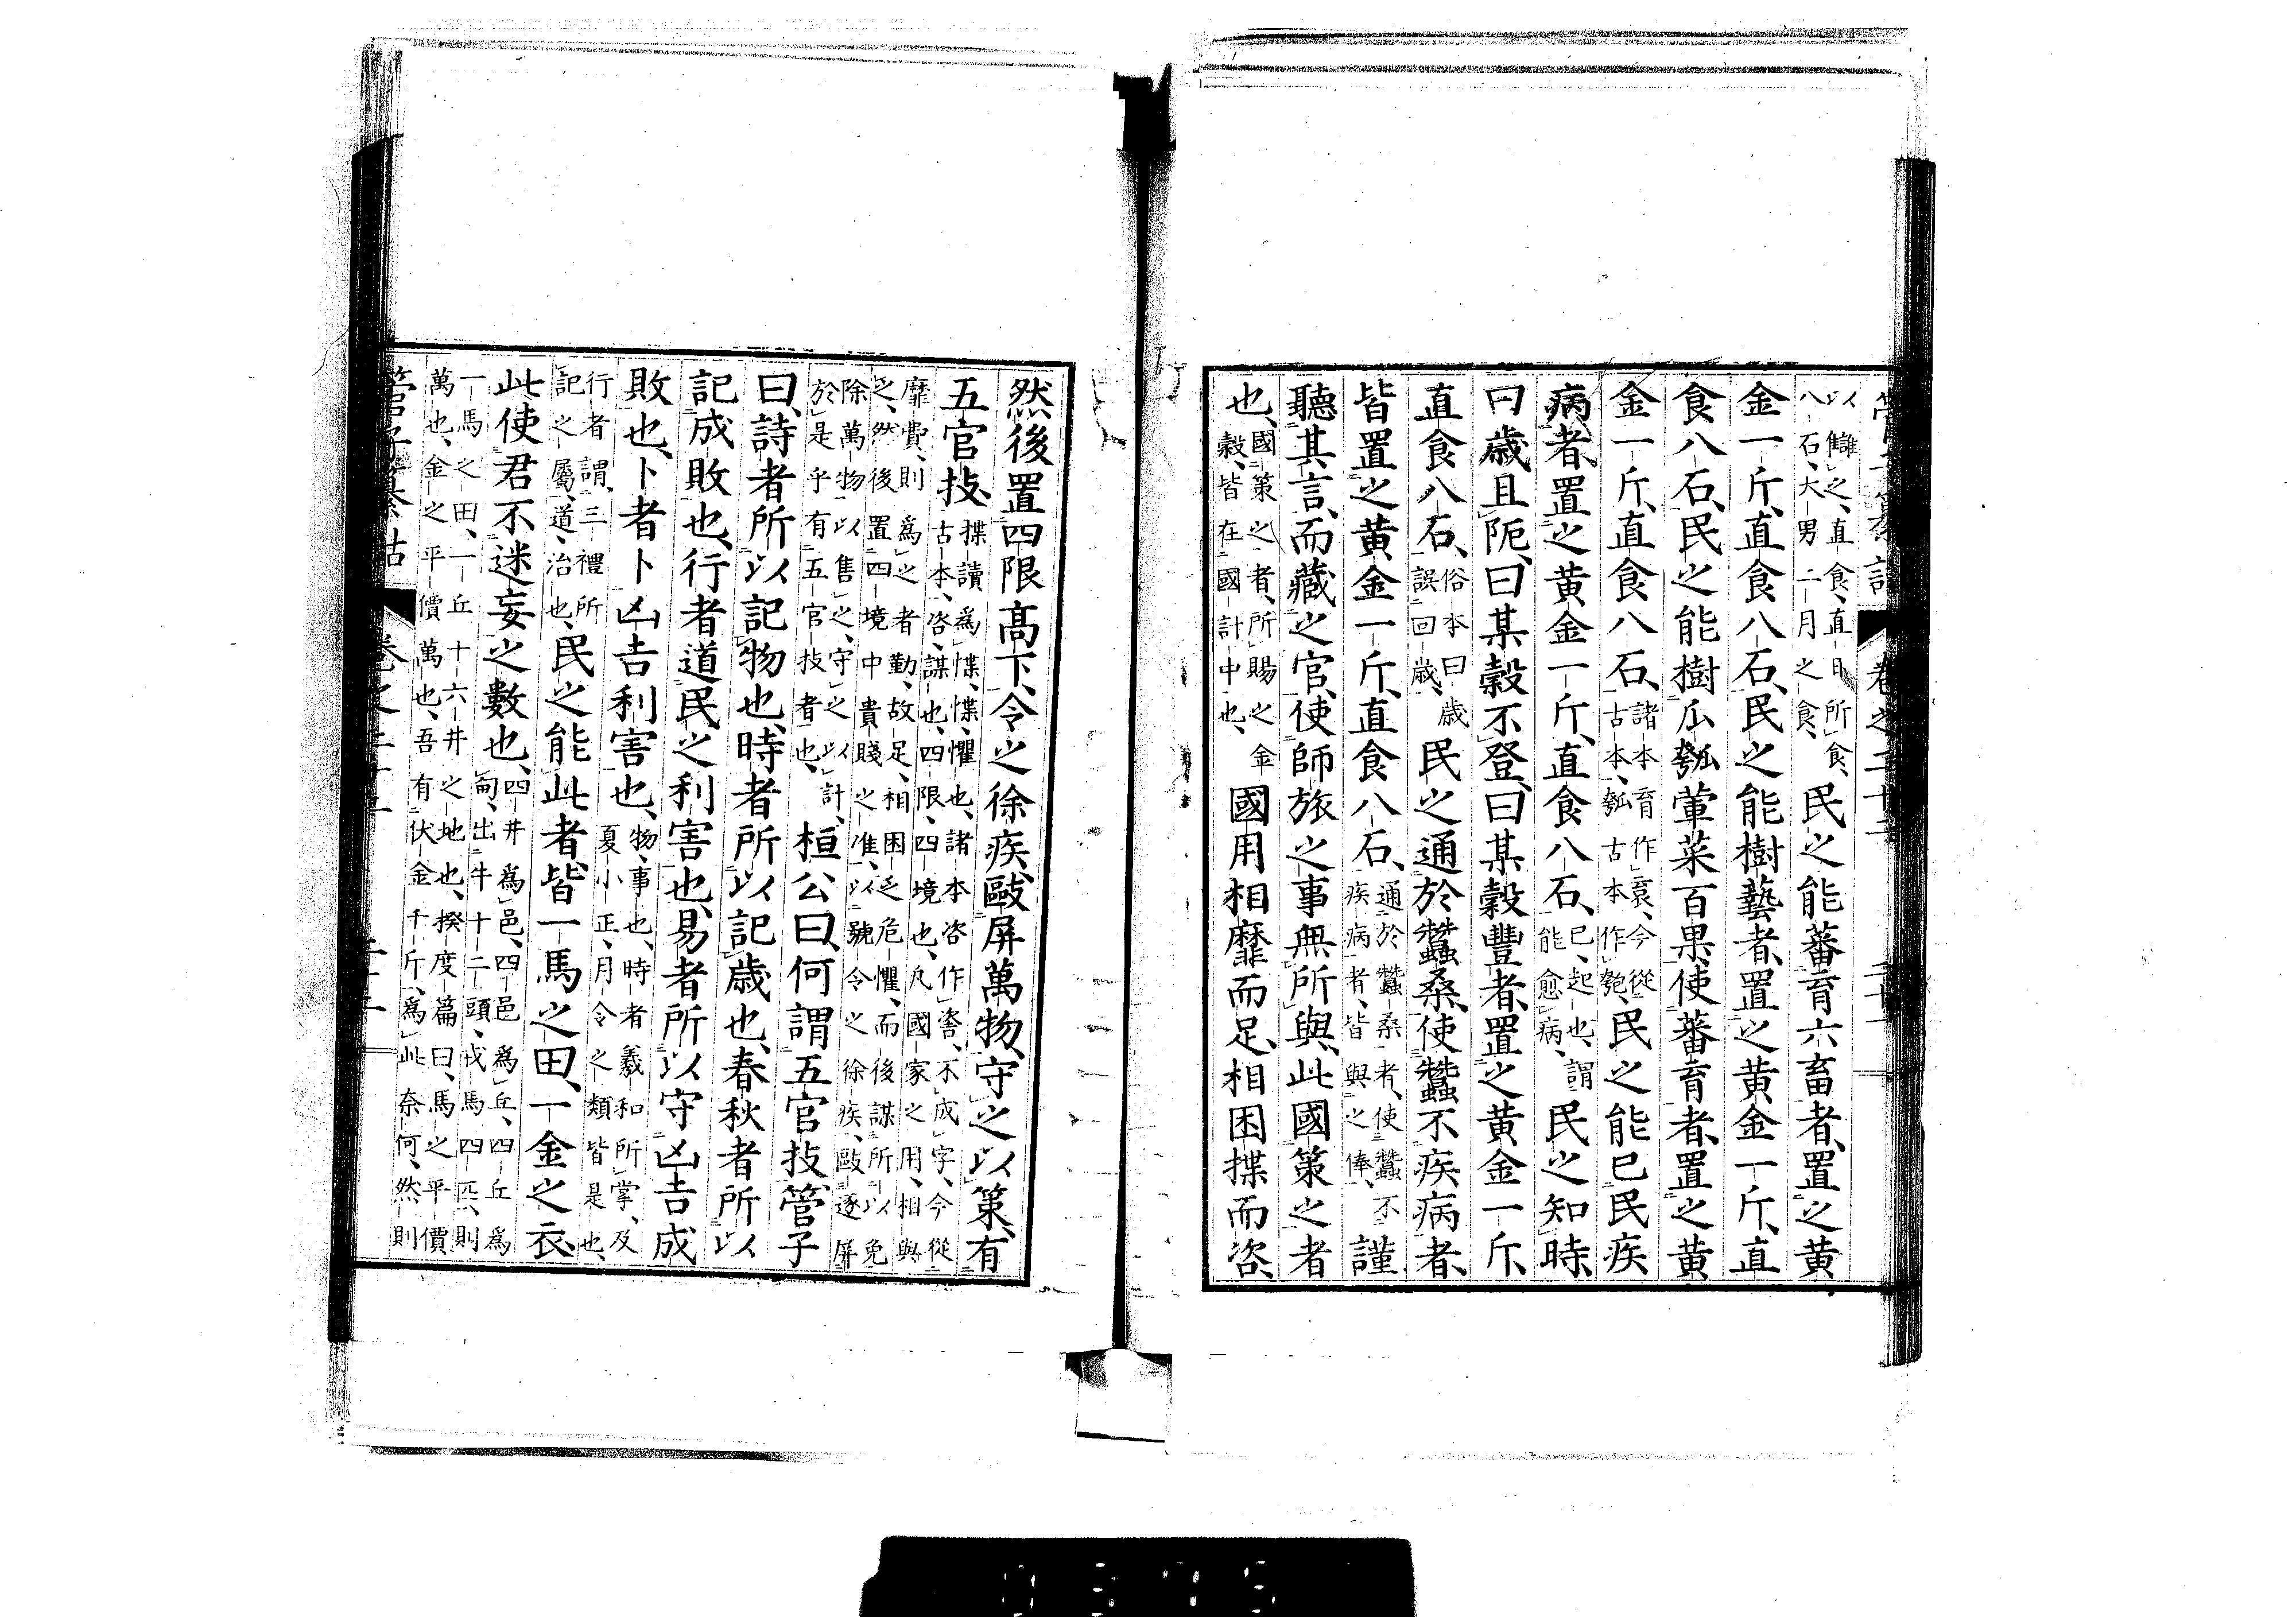 以讎之、直食、直日所食、
八石、大男二月之食、民之能蕃育六畜者、置之黃
金一斤、直食八石、民之能樹藝者、置之黃金一斤、直
食八石、民之能樹瓜瓠葷菜百果、使蕃育者、置之黃
金一斤、直食八石、諸本育作袬、今從
古本、瓠古本作匏、民之能已民疾
病者、置之黃金一斤、直食八石、已、起也、謂
能愈病、民之知時、
曰歲且阨、曰某穀不登、曰某穀豐者、置之黃金一斤、
直食八石、俗本曰歲
誤回歲、民之通於蠶桑、使蠶不疾病者、
皆置之黃金一斤、直食八石、通於蠶桑者、使蠶不
疾病者、皆與之俸、謹
聽其言、而藏之官、使師旅之事無所與、此國策之者
也、國策之者、所賜之金
穀、皆在國計中也、國用相靡而足、相困揲而咨、
然後置四限高下、令之徐疾、敺屏萬物、守之以策、有
五官技、揲讀爲惵、惵、懼也、諸本咨作𠶷、不成字、今從
古本、咨、謀也、四限、四境也、凡國家之用、相與
靡費、則爲之者勤、故足、相困乏危懼、而後謀所以免
乏、然後置四境中貴賤之准、以號令之徐疾、敺逐屏
除萬物以售之、守之以計、
於是乎有五官技者也、桓公曰、何謂五官技、管子
曰、詩者所以記物也、時者所以記歲也、春秋者所以
記成敗也、行者道民之利害也、易者所以守凶吉成
敗也、卜者卜凶吉利害也、物、事也、時者羲和所掌、及
夏小正、月令之類皆是也、
行者謂三禮所
記之屬、道、治也、民之能此者、皆一馬之田、一金之衣、
此使君不迷妄之數也、四井爲邑、四邑爲丘、四丘爲
甸、出牛十二頭、戎馬四匹、則
一馬之田、一丘十六井之地也、揆度篇曰、馬之平價
萬也、金之平價萬也、吾有伏金千斤、爲此奈何、然則